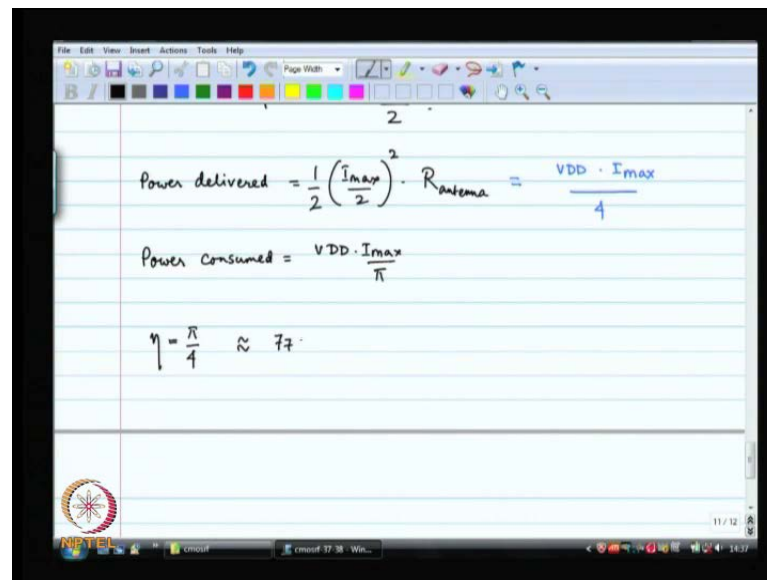 File Edit View Insert Actions Tools Help
Page Width
B I
2
Power delivered = 1/2 (Imax/2)^2 · Rantenna = VDD · Imax / 4
Power consumed = VDD · Imax / π
η = π/4 ≈ 77·
11 / 12
NPTEL
cmosrf
cmosrf-37-38 - Win...
14:37